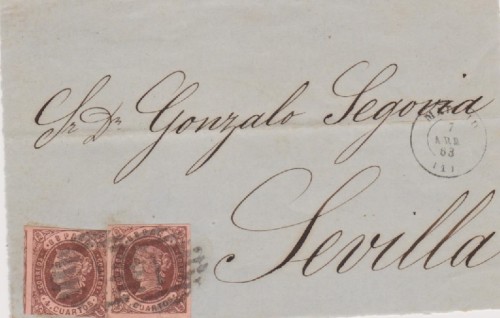 Sr. Dn. Gonzalo Segovia
7
ABR
63
(11)
Sevilla
4 CUARTOS
4 CUARTOS